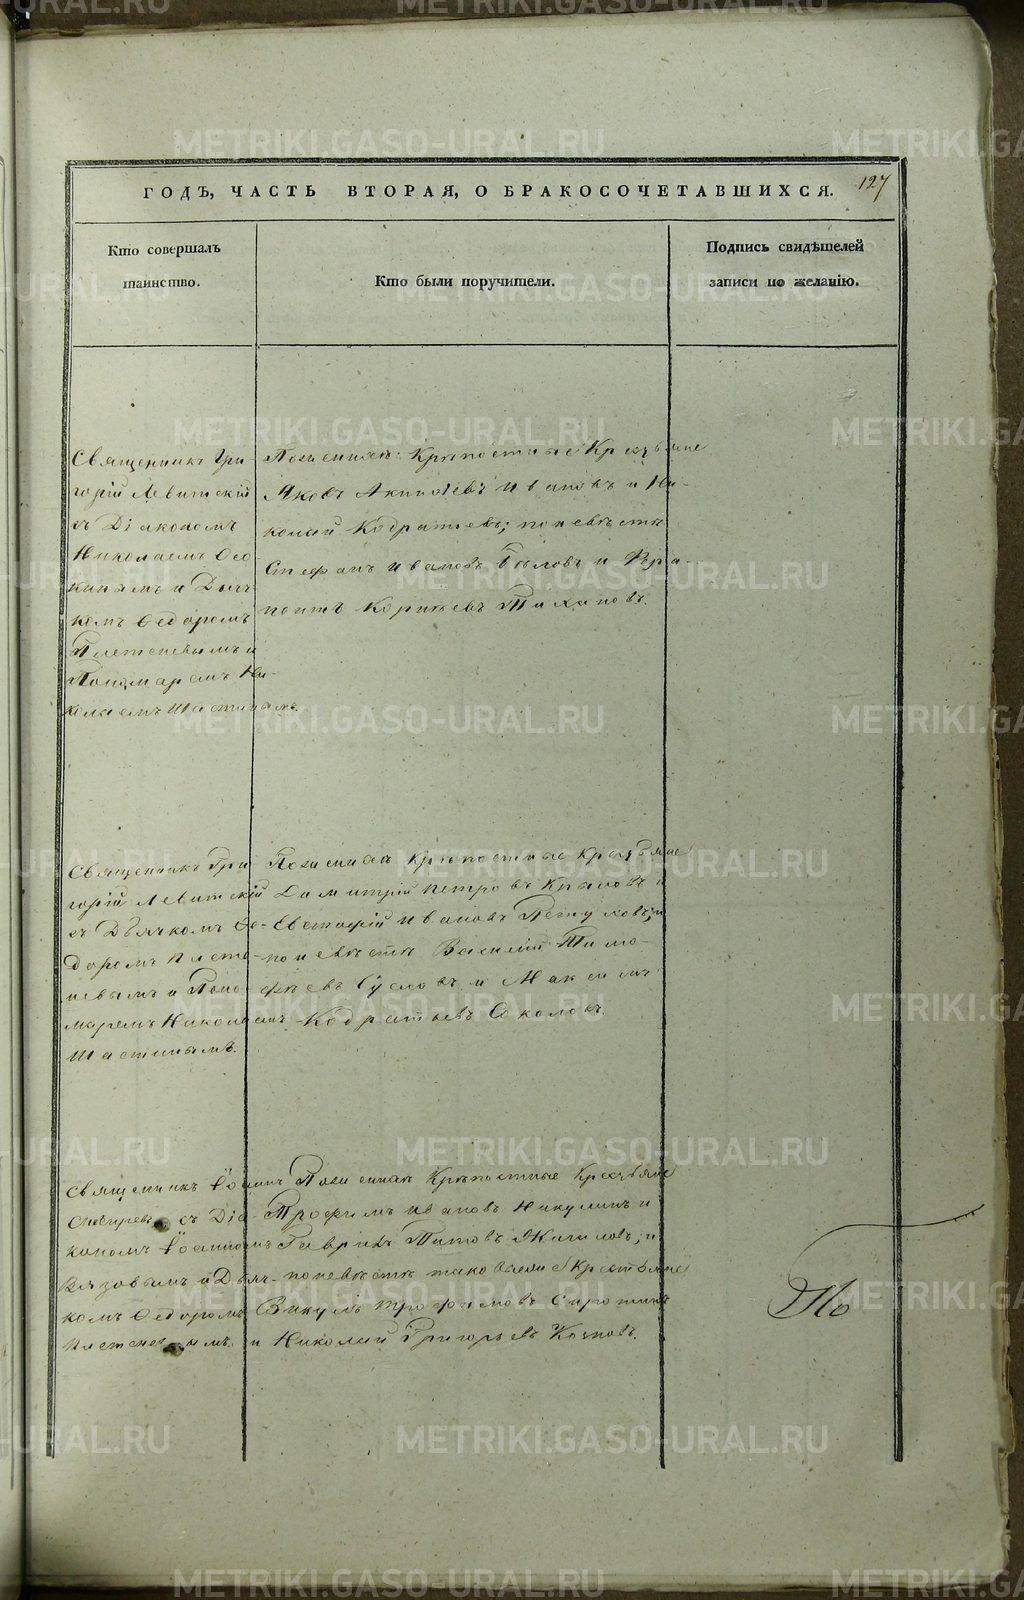 ГОДЪ, ЧАСТЬ ВТОРАЯ, О БРАКОСОЧЕТАВШИХСЯ. 127
Кто совершалъ таинство.
Кто были поручители.
Подпись свидѣтелей записи по желанію.
Священникъ Гри
горій Левитскій
съ Діакономъ
Николаемъ Ѳео
кинымъ и Дьяч
комъ Ѳедоромъ
Плетеневымъ и
Пономаремъ Ни-
колаемъ Шастинымъ.
Поженихѣ: Крѣпостные Крестьяне
Яковъ Акинѳіевъ Ивановъ и Ни-
колай Кодратьевъ; поневѣстѣ
Стефанъ Ивановъ Бѣловъ и
Корнѣевъ
Священникъ Гри
горій Левитскій
съ Дьячкомъ Ѳе-
доромъ Плете-
невымъ и Поно-
маремъ Николаемъ
Шастинымъ.
Поженихѣ Крѣпостные Крестьяне
Димитрій Петровъ и
Евстафій Ивановъ Петуховъ; и
поневѣстѣ Василій Тимо-
фѣевъ Сусловъ и Максимъ
Кодратьевъ
Священникъ Іоаннъ
съ Діа-
кономъ Іоанномъ
Вязовымъ и Дьяч-
комъ Ѳедоромъ
Плетеневымъ.
Поженихѣ Крѣпостные Крестьяне
Трофимъ Ивановъ Никулинъ и
Гаврилъ Титовъ Жигиловъ; и
поневѣстѣ таковыеже Крестьяне
Викулъ Трофимовъ
и Николай Григорьевъ
По
METRIKI.GASO-URAL.RU